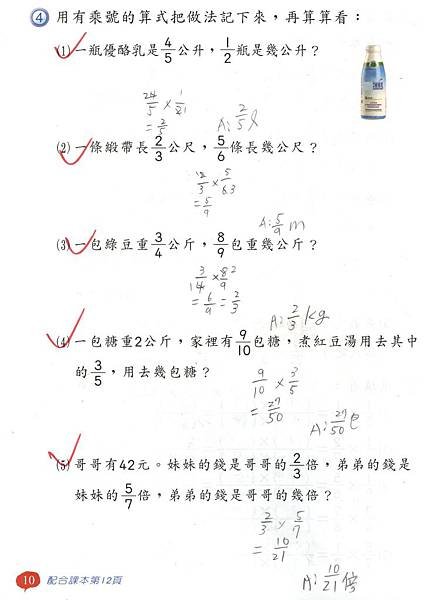 4 用有乘號的算式把做法記下來，再算算看：
(1) 一瓶優酪乳是4/5公升，1/2瓶是幾公升？
4/5 × 1/2
= 2/5
A: 2/5 l
(2) 一條緞帶長2/3公尺，5/6條長幾公尺？
2/3 × 5/6
= 5/9
A: 5/9 m
(3) 一包綠豆重3/4公斤，8/9包重幾公斤？
3/4 × 8/9
= 6/9 = 2/3
A: 2/3 kg
(4) 一包糖重2公斤，家裡有9/10包糖，煮紅豆湯用去其中
的3/5，用去幾包糖？
9/10 × 3/5
= 27/50
A: 27/50 包
(5) 哥哥有42元。妹妹的錢是哥哥的2/3倍，弟弟的錢是
妹妹的5/7倍，弟弟的錢是哥哥的幾倍？
2/3 × 5/7
= 10/21
A: 10/21 倍
10 配合課本第12頁